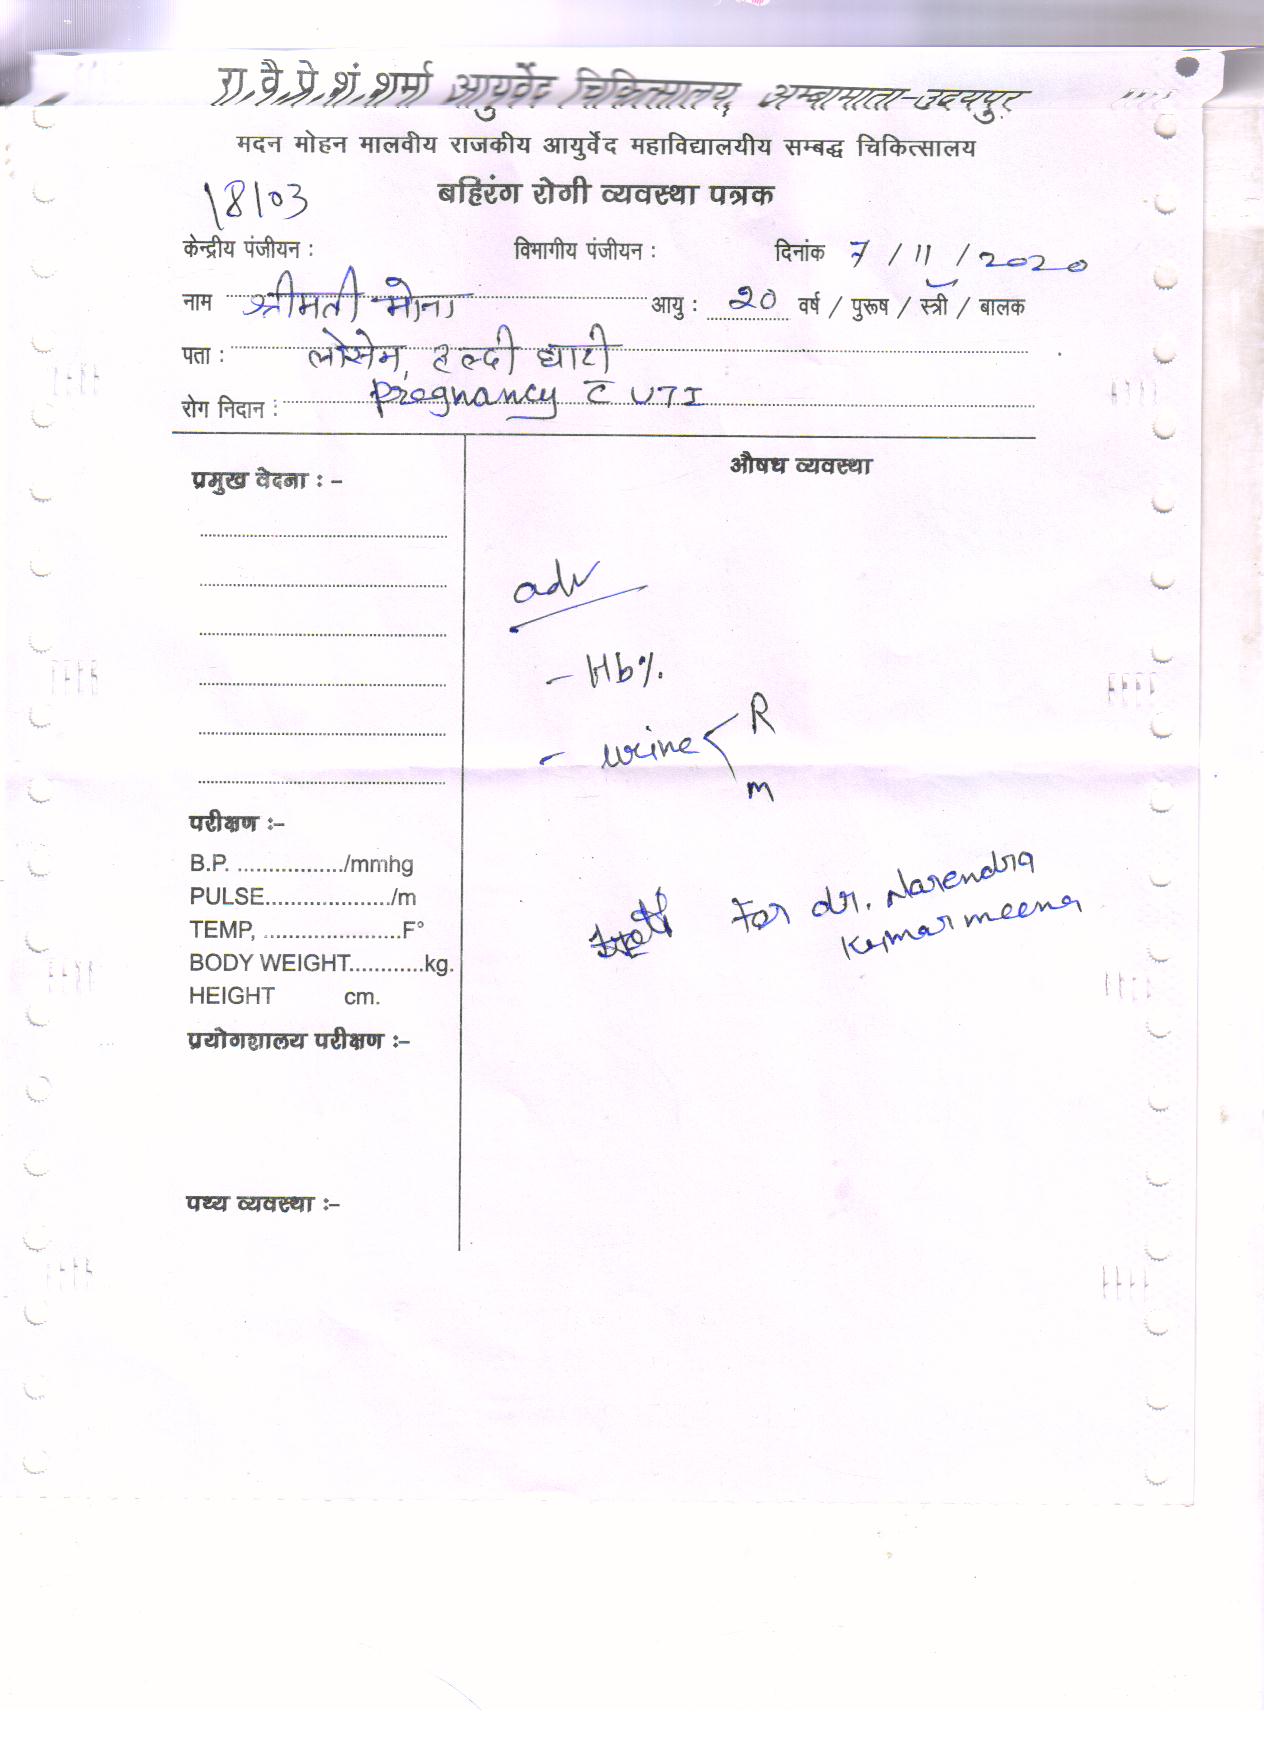 रा.वै.प्रे.शं.शर्मा आयुर्वेद चिकित्सालय, अम्बामाता-उदयपुर
मदन मोहन मालवीय राजकीय आयुर्वेद महाविद्यालयीय सम्बद्ध चिकित्सालय
18103 बहिरंग रोगी व्यवस्था पत्रक
केन्द्रीय पंजीयन : विभागीय पंजीयन : दिनांक 7 / 11 / 2020
नाम श्रीमती मोना आयु : 20 वर्ष / पुरूष / स्त्री / बालक
पता : लोसेन, हल्दी घाटी
रोग निदान : pregnancy c̄ UTI
प्रमुख वेदना : -
औषध व्यवस्था
adv
- Hb%.
- urine < R
m
परीक्षण :-
B.P. ................./mmhg
PULSE..................../m
TEMP, ......................F°
BODY WEIGHT............kg.
HEIGHT cm.
For dr. Narendra
Kumar meena
प्रयोगशालय परीक्षण :-
पथ्य व्यवस्था :-